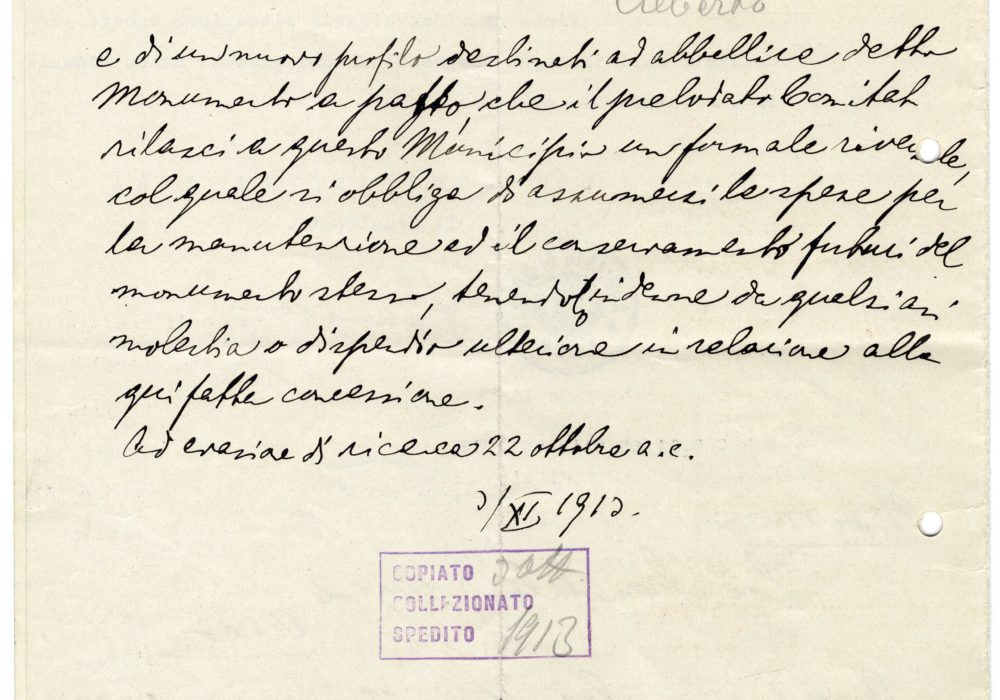 e di un nuovo profilo destinati ad abbellire detto
Monumento a patto, che il prelodato Comitat
rilasci a questo Municipio un formale riversale,
col quale si obbliga di assumersi le spese per
la manutenzione ed il conservamento futuri del
monumento stesso, tenendolo indenne da qualsiasi
molestia o dispendio ulteriore in relazione alla
qui fatta concessione.
Ad evasione di ricerca 22 ottobre a.c.
3/XI 1913.
COPIATO
COLLAZIONATO
SPEDITO 1913